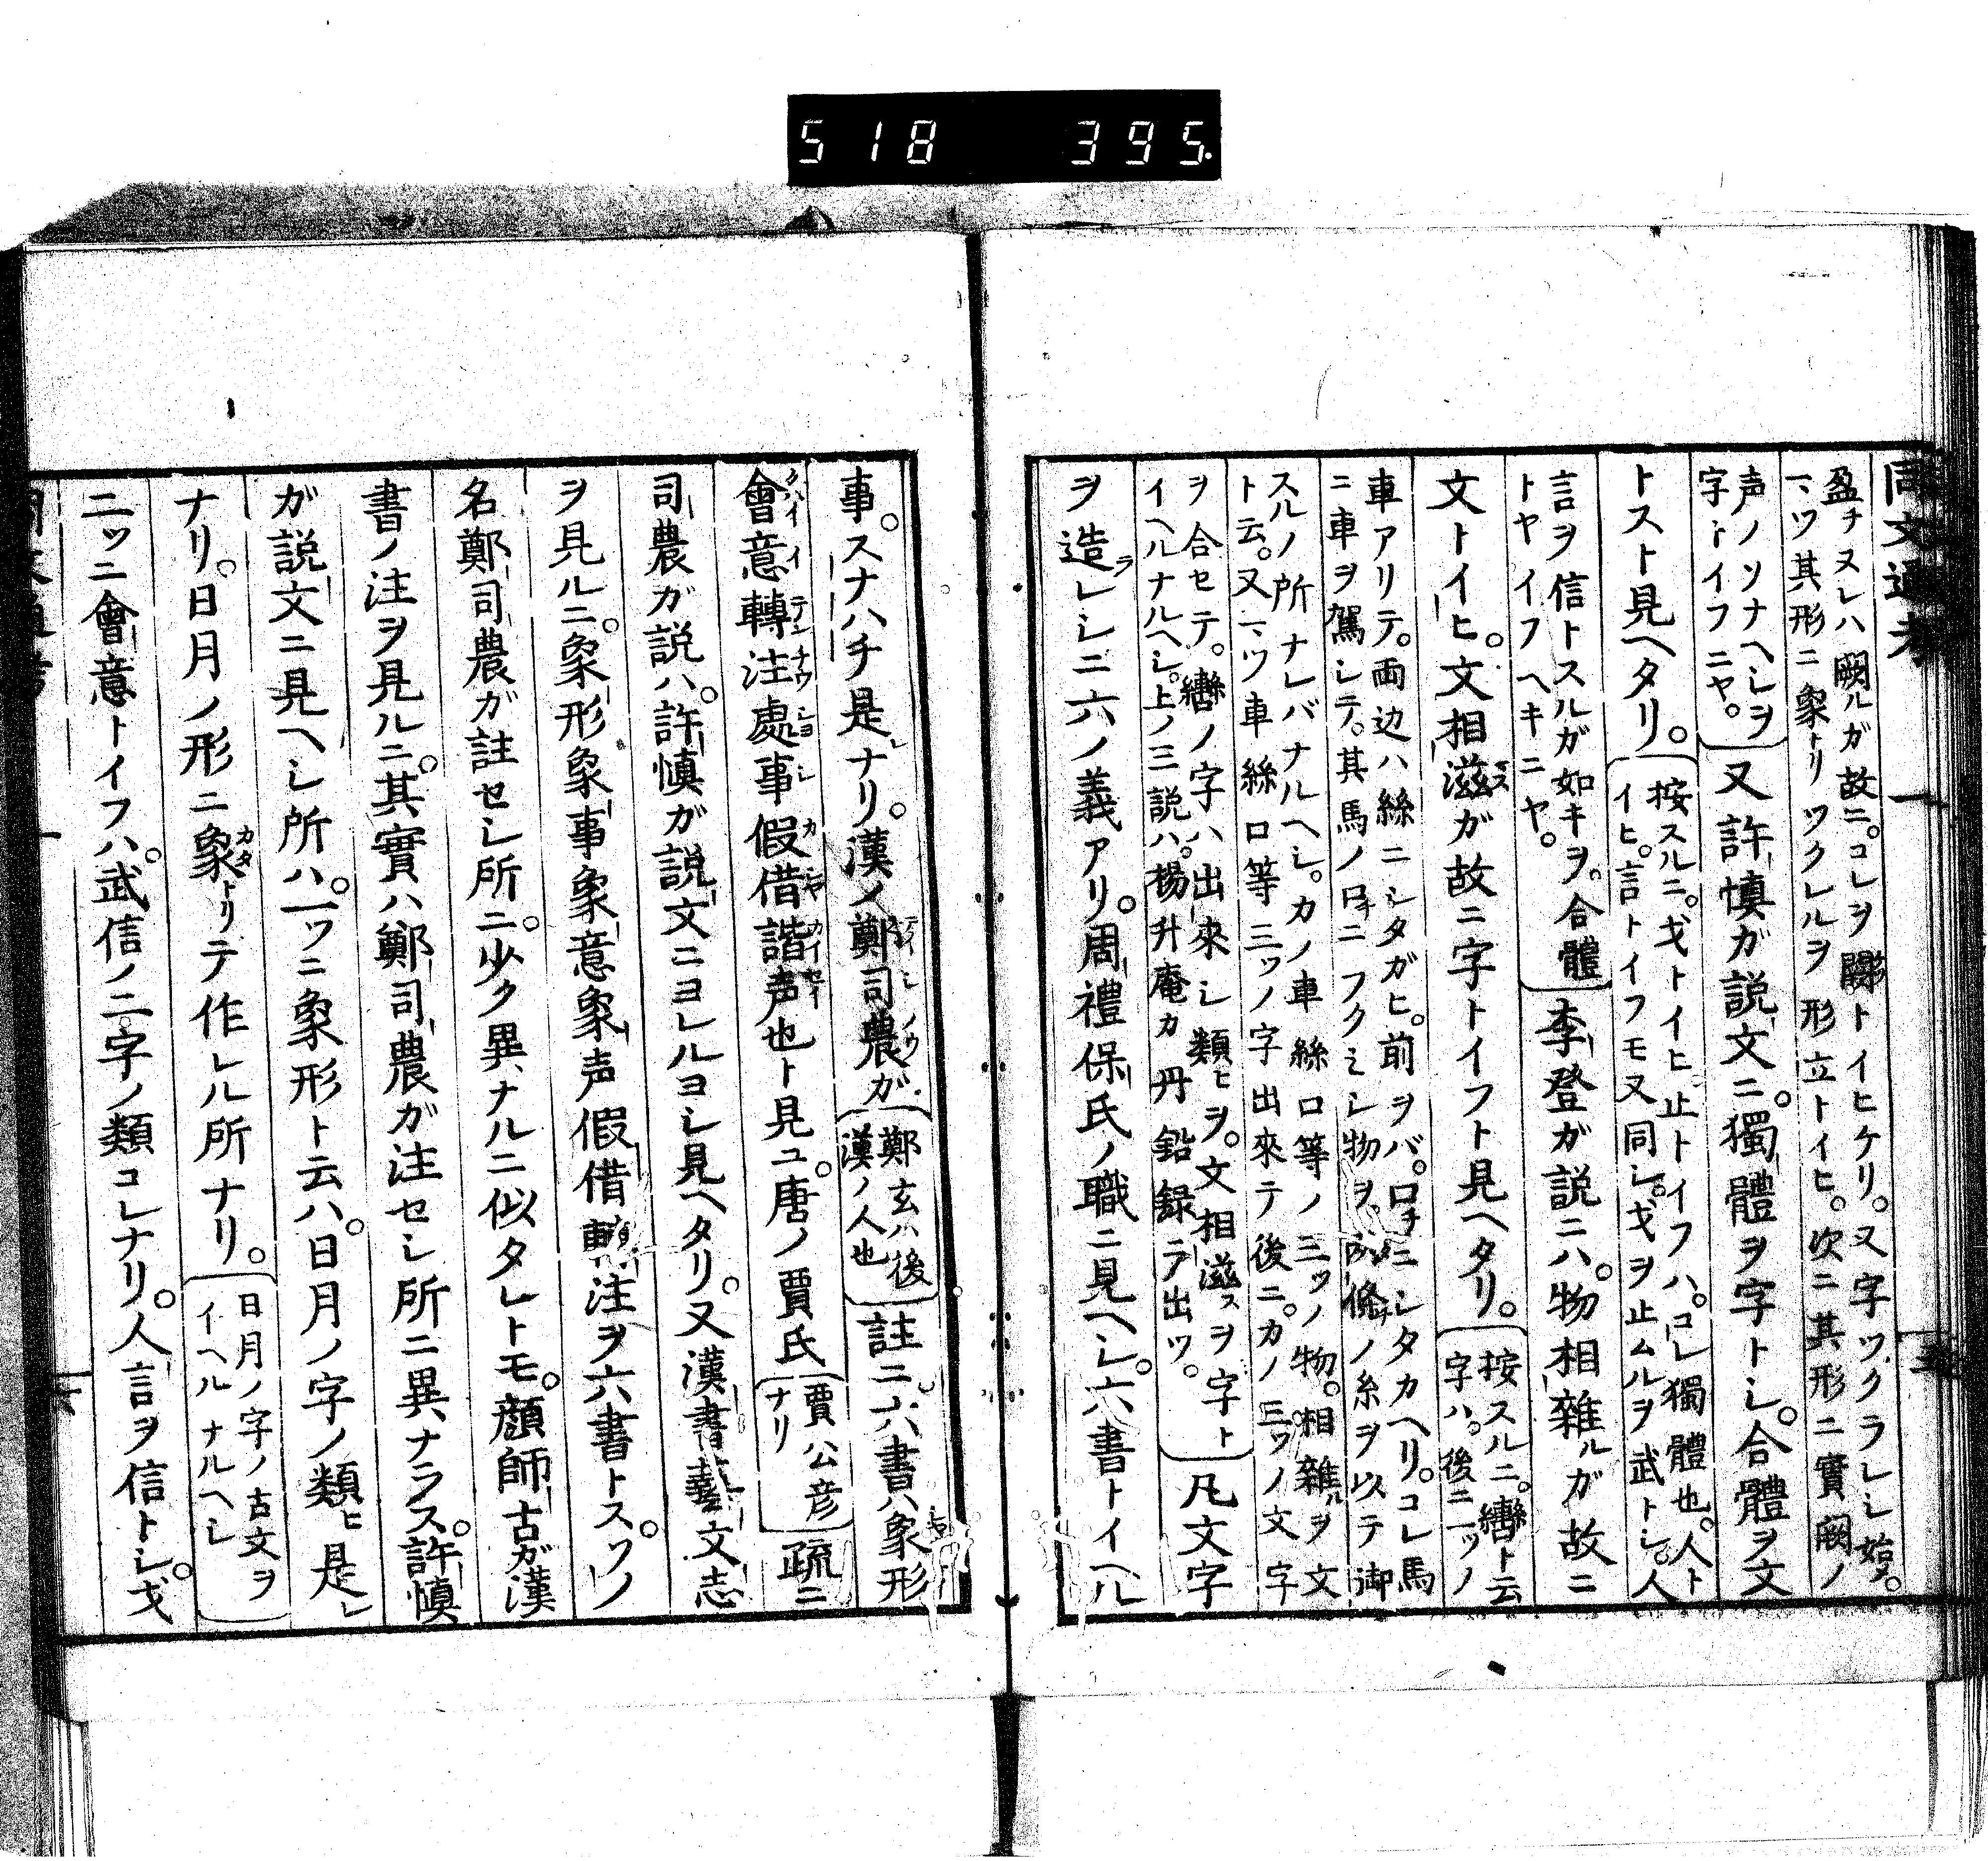 518 395.
同文通考 一 五
盈チヌレハ闕ルガ故ニ。コレヲ闕トイヒケリ。又字ツクラレシ始メ。
一ツ其形ニ象トリツクレルヲ形立トイヒ。次ニ其形ニ實闕ノ
声ノソナヘシヲ
字トイフニヤ。
又許慎ガ説文ニ。獨體ヲ字トシ。合體ヲ文
トスト見ヘタリ。
按スルニ。戈トイヒ止トイフハ。コレ獨體也。人ト
イヒ。言トイフモ又同シ。戈ヲ止ムルヲ武トシ。人
言ヲ信トスルガ如キヲ。合體
トヤイフヘキニヤ。
李登ガ説ニハ。物相雜ルガ故ニ
文トイヒ。文相滋ガ故ニ字トイフト見ヘタリ。
按スルニ。轡ト云
字ハ。後ニ一ツノ
車アリテ。両辺ハ絲ニシタガヒ。前ヲバ。口チニシタカヘリ。コレ馬
ニ車ヲ駕シテ。其馬ノ口チニフクミシ物ヲ。両條ノ糸ヲ以テ御
スルノ所ナレバナルヘシ。カノ車絲口等ノ三ツノ物。相雜ルヲ文
ト云。又一ツ車絲口等三ツノ字出來テ後ニ。カノ三ツノ文字
ヲ合セテ。轡ノ字ハ出來シ類ヒヲ。文相滋スヲ字ト
イヘルナルヘシ。上ノ三説ハ。楊升庵カ丹鉛録ラ出ツ。
凡文字
ヲ造ラレシニ六ノ義アリ。周禮保氏ノ職ニ見ヘシ。六書トイヘル
事。スナハチ是ナリ。漢ノ鄭司農ガ
鄭玄ハ後
漢ノ人也
註ニ六書ハ象形
會意轉注處事假借諧声也ト見ユ。唐ノ賈氏
賈公彦
ナリ
疏ニ
司農ガ説ハ。許慎ガ説文ニヨレルヨシ見ヘタリ。又漢書藝文志
ヲ見ルニ。象形象事象意象声假借轉注ヲ六書トス。ソノ
名鄭司農ガ註セシ所ニ。少ク異ナルニ似タレトモ。顔師古ガ漢
書ノ注ヲ見ルニ。其實ハ鄭司農ガ注セシ所ニ異ナラス。許慎
ガ説文ニ見ヘシ所ハ。一ツニ象形ト云ハ。日月ノ字ノ類ヒ是レ
ナリ。日月ノ形ニ象トリテ作レル所ナリ。
日月ノ字ノ古文ヲ
イヘルナルヘシ
二ツニ會意トイフハ。武信ノ二字ノ類コレナリ。人言ヲ信トシ。戈
一 六